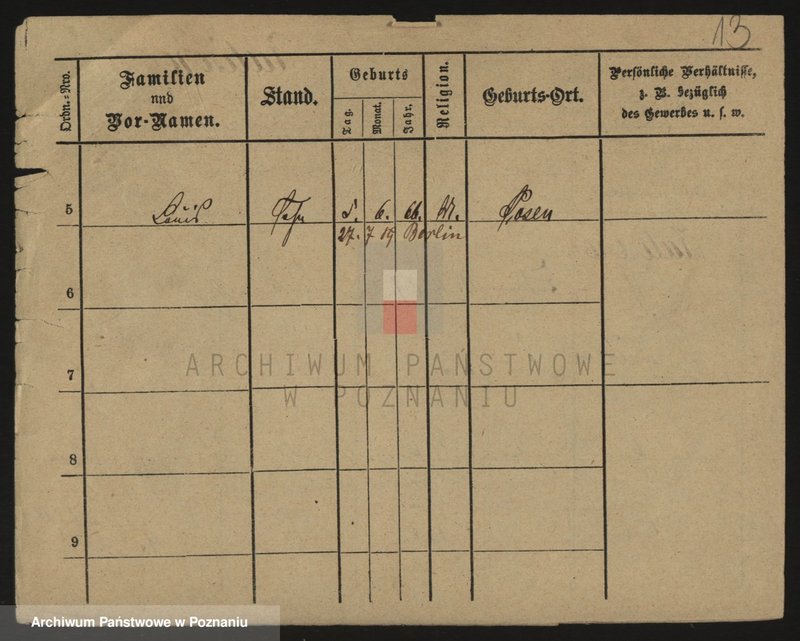 13
Ordn.=Nro.
Familien
und
Vor-Namen.
Stand.
Geburts
Tag.
Monat.
Jahr.
Religion.
Geburts-Ort.
Persönliche Verhältnisse,
z. B. bezüglich
des Gewerbes u. s. w.
5 Louis 5. 6. 66. M. Posen
27. 7 19 Berlin
6
7
8
9
ARCHIWUM PAŃSTWOWE
W POZNANIU
Archiwum Państwowe w Poznaniu